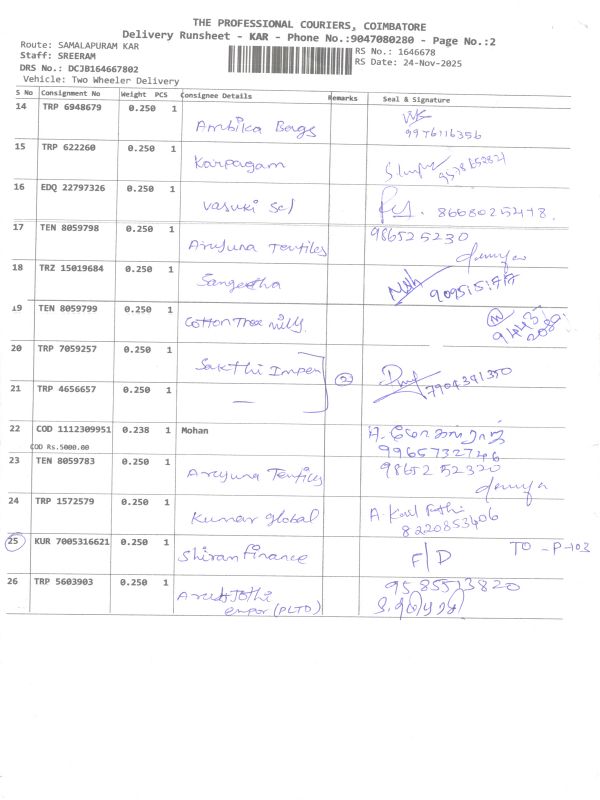 THE PROFESSIONAL COURIERS, COIMBATORE
Delivery Runsheet - KAR - Phone No.:9047080280 - Page No.:2
Route: SAMALAPURAM KAR
Staff: SREERAM
DRS No.: DCJB164667802
Vehicle: Two Wheeler Delivery
RS No.: 1646678
RS Date: 24-Nov-2025
S No Consignment No Weight PCS Consignee Details Remarks Seal & Signature
14 TRP 6948679 0.250 1 Ambika Bags
9976116356
15 TRP 622260 0.250 1 Karpagam
16 EDQ 22797326 0.250 1 Vasuki Sel 8668025478.
17 TEN 8059798 0.250 1 Arujuna Textiles 986525230
18 TRZ 15019684 0.250 1 Sangeetha
19 TEN 8059799 0.250 1 Cotton Tree Mills.
20 TRP 7059257 0.250 1 Sakthi Impex 2 7904391350
21 TRP 4656657 0.250 1 —
22 COD 1112309951 0.238 1 Mohan
COD Rs.5000.00 9965732746
23 TEN 8059783 0.250 1 Arujuna Textiles 9865252320
24 TRP 1572579 0.250 1 Kumar global
8220853406
25 KUR 7005316621 0.250 1 Shiram Finance F/D TO - P-103
26 TRP 5603903 0.250 1 9585513820
(PLTD)